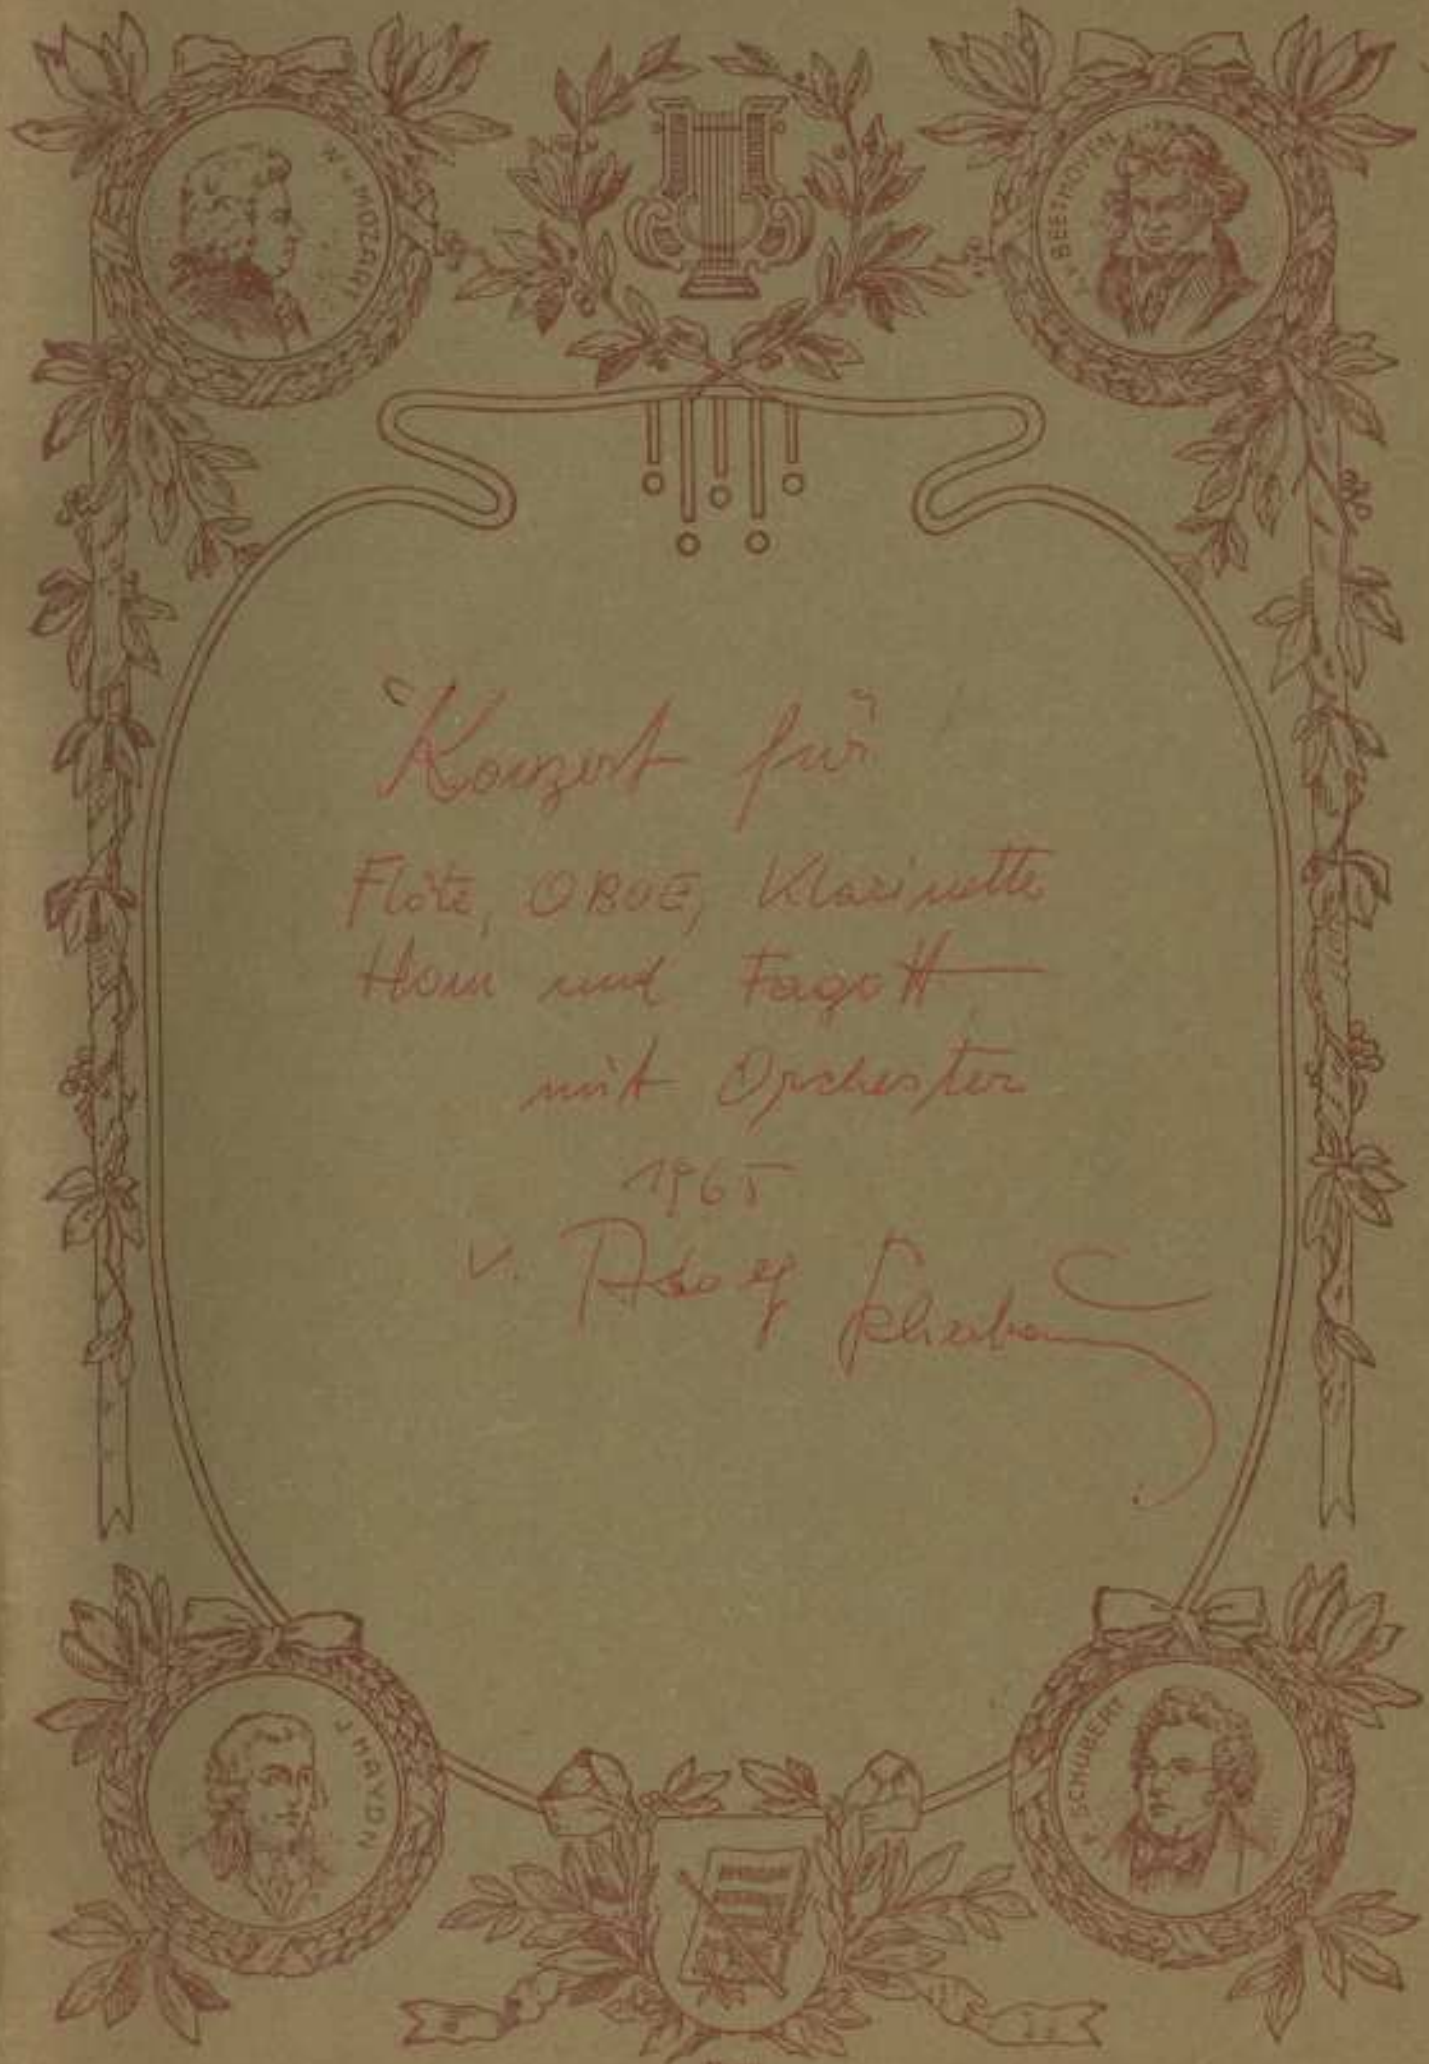 W. A. MOZART
L. v. BEETHOVEN
"Konzert für"
Flöte, OBOE, Klarinette
Horn und Fagott
mit Orchester
1965
v. Adolf
J. HAYDN
F. SCHUBERT